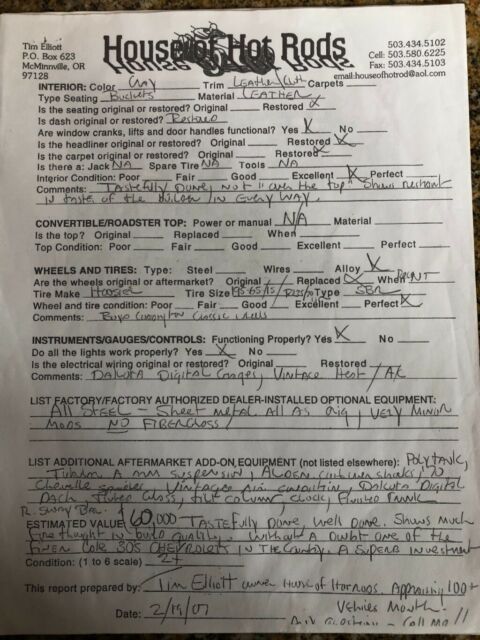 Tim Elliott
P.O. Box 623
McMinnville, OR
97128
House of Hot Rods
503.434.5102
Cell: 503.580.6225
Fax: 503.434.5103
email:househotrod@aol.com
INTERIOR: Color Gray Trim Leather/Cloth Carpets
Type Seating Buckets Material Leather
Is the seating original or restored? Original Restored X
Is dash original or restored? Restored
Are window cranks, lifts and door handles functional? Yes X No
Is the headliner original or restored? Original Restored X
Is the carpet original or restored? Original Restored X
Is there a: Jack NA Spare Tire NA Tools NA
Interior Condition: Poor Fair Good Excellent X Perfect
Comments: Tastefully Done, Not "over the top" Shows restraint
in taste of the builder in every way.
CONVERTIBLE/ROADSTER TOP: Power or manual NA Material
Is the top? Original Replaced When
Top Condition: Poor Fair Good Excellent Perfect
WHEELS AND TIRES: Type: Steel Wires Alloy X
Are the wheels original or aftermarket? Original Replaced X When
Tire Make Tire Size Type SBR
Wheel and tire condition: Poor Fair Good Excellent Perfect X
Comments: Classic
INSTRUMENTS/GAUGES/CONTROLS: Functioning Properly? Yes X No
Do all the lights work properly? Yes X No
Is the electrical wiring original or restored? Original Restored
Comments: Dakota Digital Gauges, Vintage Heat/Air
LIST FACTORY/FACTORY AUTHORIZED DEALER-INSTALLED OPTIONAL EQUIPMENT:
All Steel - Sheet metal All As Orig, Very Minor
Mods No Fiberglass
LIST ADDITIONAL AFTERMARKET ADD-ON EQUIPMENT (not listed elsewhere): Poly tank,
suspension, shocks, 70
Chevelle Vintage Air Condition, Dakota Digital
Dash, Glass, tilt column, clock,
R. Sway Bar.
ESTIMATED VALUE $60,000 Tastefully Done, Well Done. Shows Much
fine thought in build quality. Without a Doubt one of the
finer late 30s Chevrolets in the Country. A Superb investment
Condition: (1 to 6 scale) 2+
This report prepared by: Tim Elliott owner House of Hot Rods. Appraising 100+
Vehicles Month.
Date: 2/19/07
Call Me!!